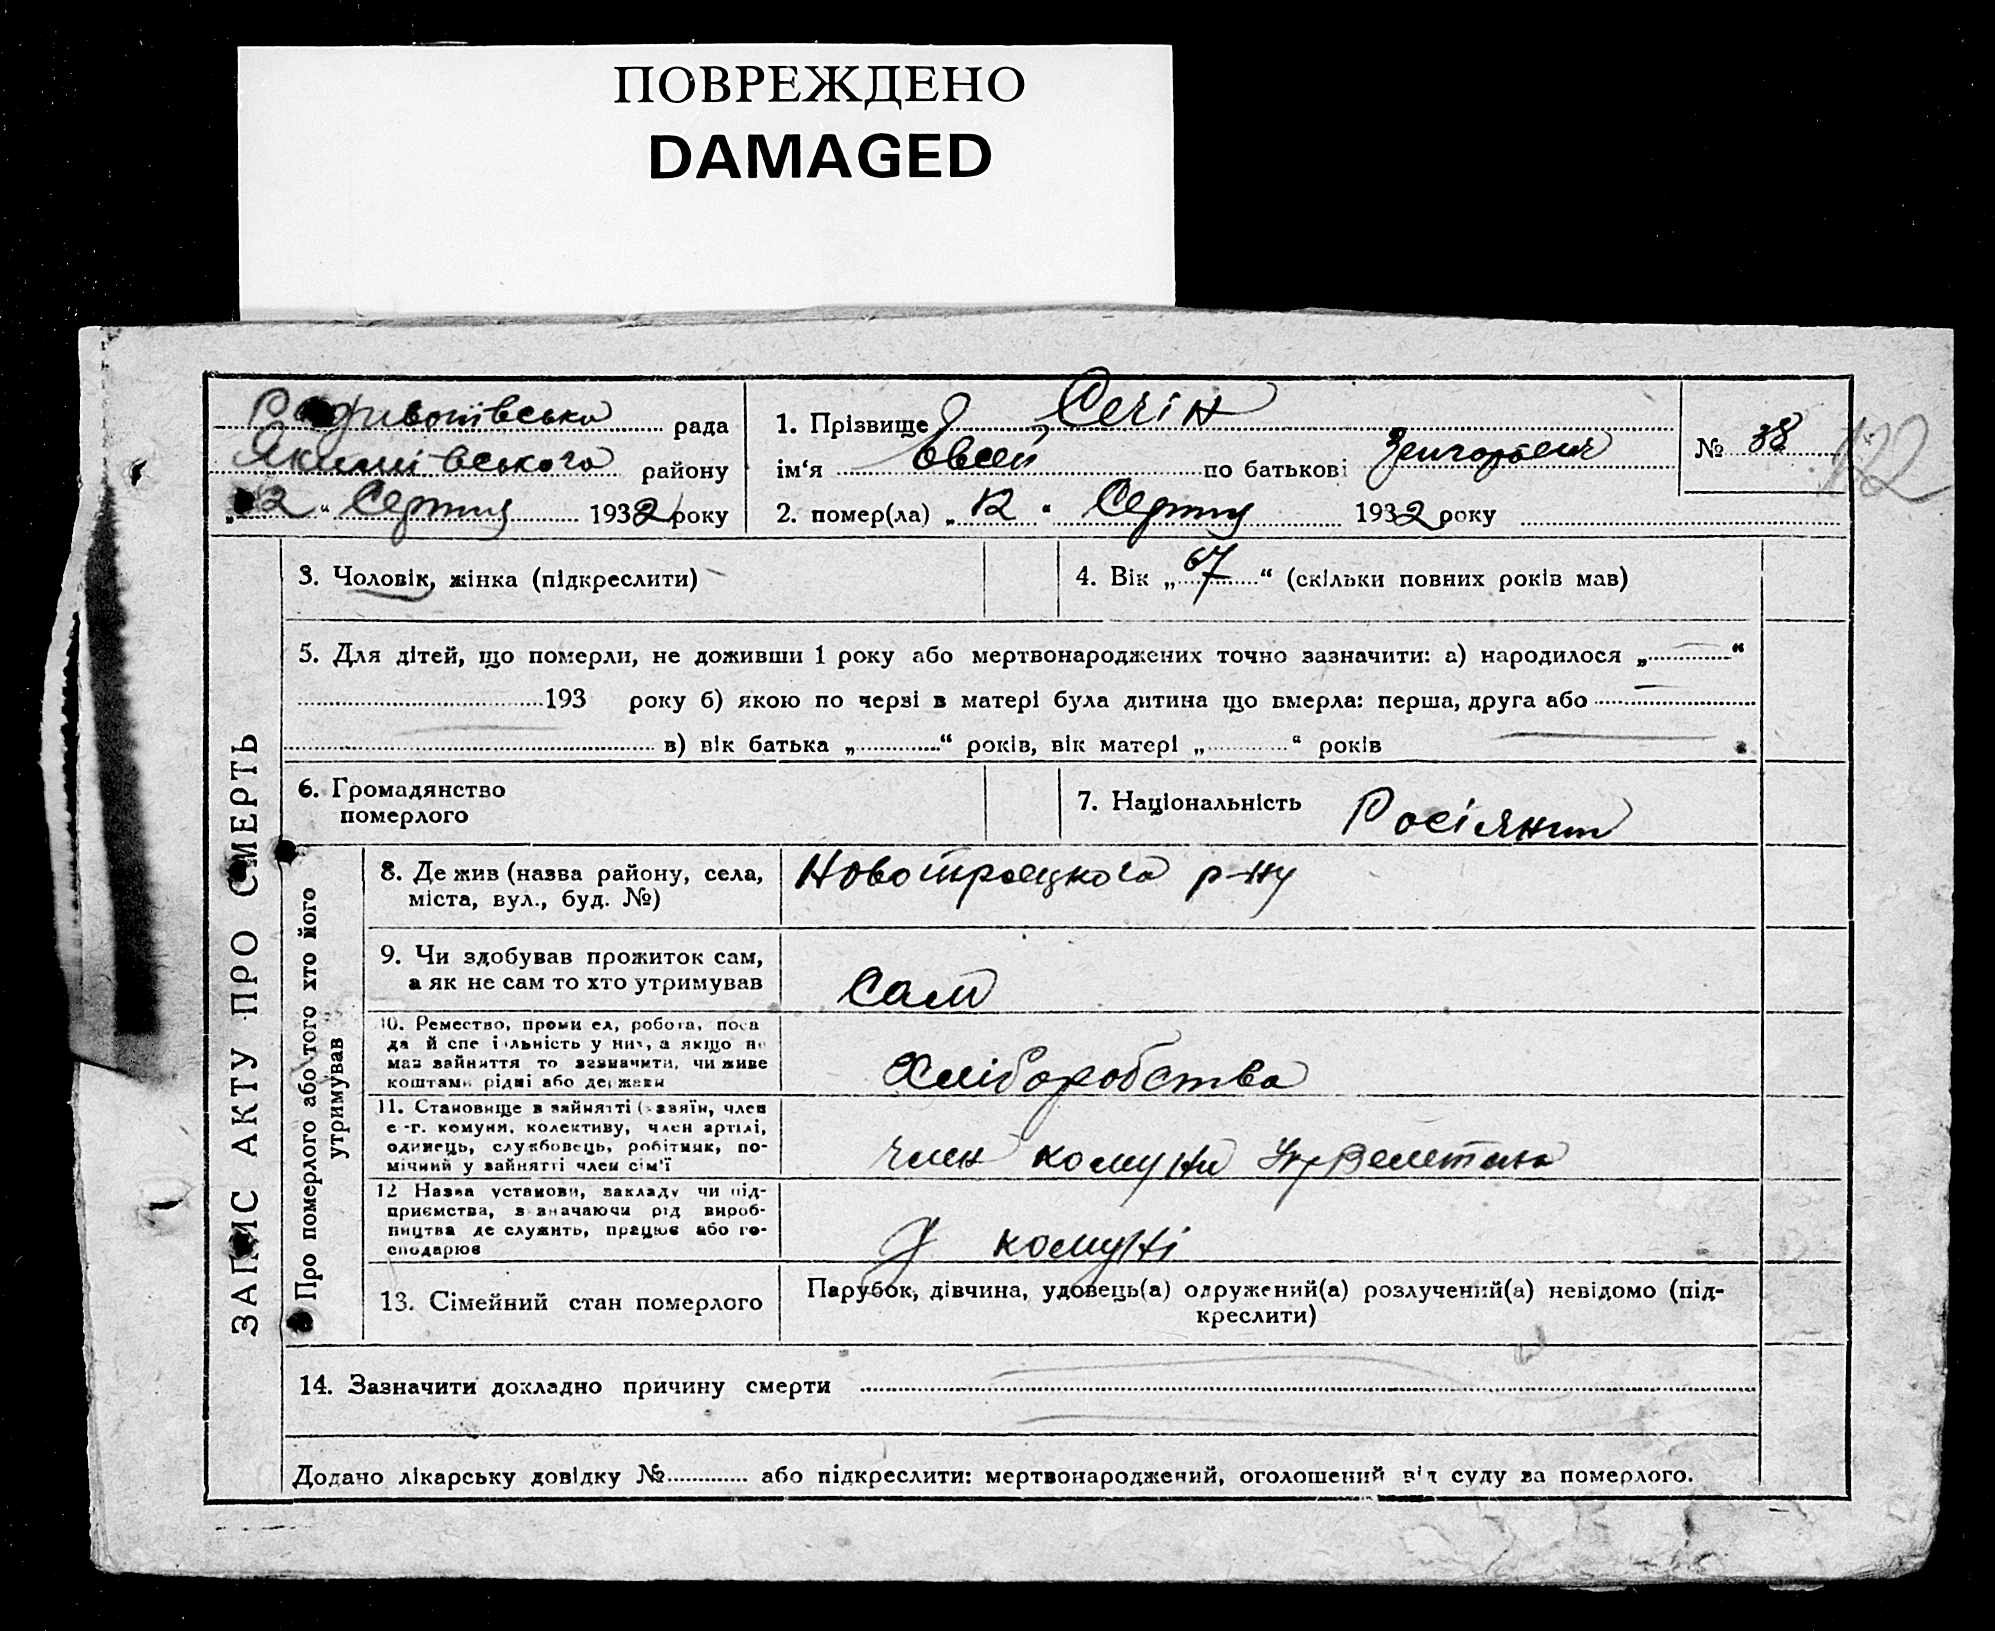 ПОВРЕЖДЕНО
DAMAGED
Радивонівська рада
Якимівського району
„12“ Серпня 1932 року
1. Прізвище Сечін
ім‘я Овсей по батькові
2. помер(ла) „12“ Серпня 1932 року
№ 38
122
ЗАПИС АКТУ ПРО СМЕРТЬ
3. Чоловік, жінка (підкреслити)
4. Вік „67“ (скільки повних років мав)
5. Для дітей, що померли, не доживши 1 року або мертвонароджених точно зазначити: а) народилося „ “
193 року б) якою по черзі в матері була дитина що вмерла: перша, друга або
в) вік батька „ “ років, вік матері „ “ років
6. Громадянство
померлого
7. Національність Росіянин
Про померлого або того хто його
утримував
8. Де жив (назва району, села,
міста, вул., буд. №)
Новотроецкого р-ну
9. Чи здобував прожиток сам,
а як не сам то хто утримував
Сам
10. Ремество, промисел, робота, поса
да й спеціальність у них, а якщо не
мав зайняття то зазначити, чи живе
коштами рідні або держави
Хліборобства
11. Становище в зайнятті (хазяїн, член
с.-г. комуни, колективу, член артілі,
одинець, службовець, робітник, по-
мічний у зайнятті член сім'ї
член комуни
12 Назва установи, закладу чи під-
приємства, зазначаючи рід вироб-
ництва де служить, працює або го-
сподарює
У комуні
13. Сімейний стан померлого
Парубок, дівчина, удовець(а) одружений(а) розлучений(а) невідомо (під-
креслити)
14. Зазначити докладно причину смерти
Додано лікарську довідку № або підкреслити: мертвонароджений, оголошений від суду за померлого.